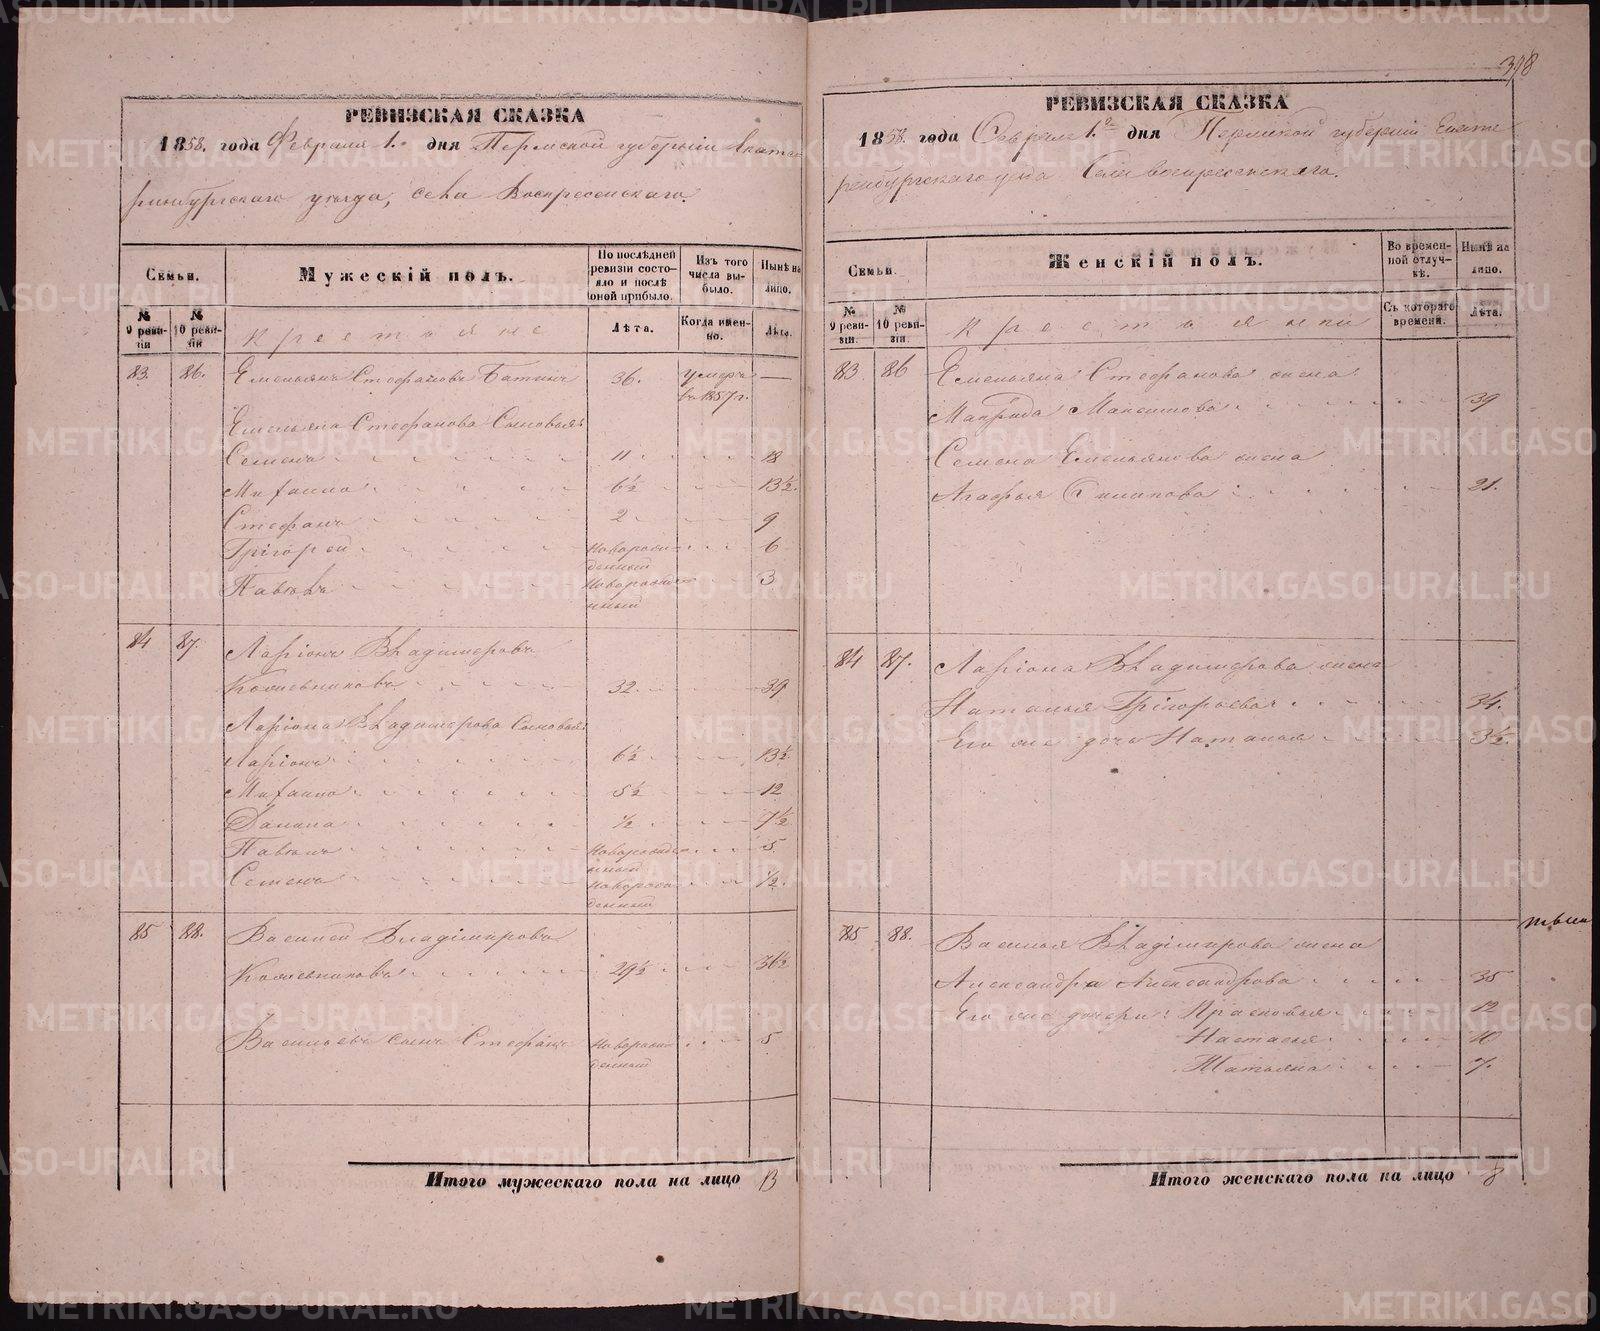 РЕВИЗСКАЯ СКАЗКА
1858. года Февраля 1. дня Пермской губернiи Екате
ринбургскаго уѣзда, села Воскресенскаго.
Семьи.
Мужескiй полъ.
По послѣдней ревизiи состояло и послѣ оной прибыло.
Изъ того числа выбыло.
Нынѣ на лицо.
№ 9 ревизiи
№ 10 ревизiи
Крестьяне
Лѣта.
Когда именно.
Лѣта.
83. 86. Емельянъ Стефановъ Баткинъ 36. умеръ въ 1857 г. —
Емельяна Стефанова Сыновья
Семенъ 11 18
Михаило 6½ 13½.
Стефанъ 2 9
Грiгорей новорожденный 6
Павелъ новорожденный 3
84 87. Ларiонъ Владимеровъ
Кожевниковъ 32. 39
Ларiона Владимерова Сыновья
Ларiонъ 6½ 13½
Михаило 5½ 12
Данила ½ 7½
Павелъ новорожденный 5
Семенъ новорожденный ½.
85 88. Василей Владiмировъ
Кожевниковъ 29½ 36½
Васильевъ сынъ Стефанъ новорожденный 5
Итого мужескаго пола на лицо 13
318
РЕВИЗСКАЯ СКАЗКА
1858. года Февраля 1.го дня Пермской губернiи Екате
ринбургскаго уѣзда Села воскресенскаго.
Семьи.
Женскiй полъ.
Во временной отлучкѣ.
Нынѣ на лицо.
№ 9 ревизiи.
№ 10 ревизiи.
Крестьянки
Съ котораго времени.
Лѣта.
83 86 Емельяна Стефанова жена
Макрида Максимова 39
Семена Емельянова жена
Агафья Филипова 21.
84 87. Ларiона Владимерова жена
Наталья Грiгорьева 34.
Его же дочь Наталья 3½.
85 88. Василья Владiмирова жена
Александра Александрова 35
Его же дочери: Прасковья 12
Настасья 10
Татьяна 7.
Итого женскаго пола на лицо 8
METRIKI.GASO-URAL.RU